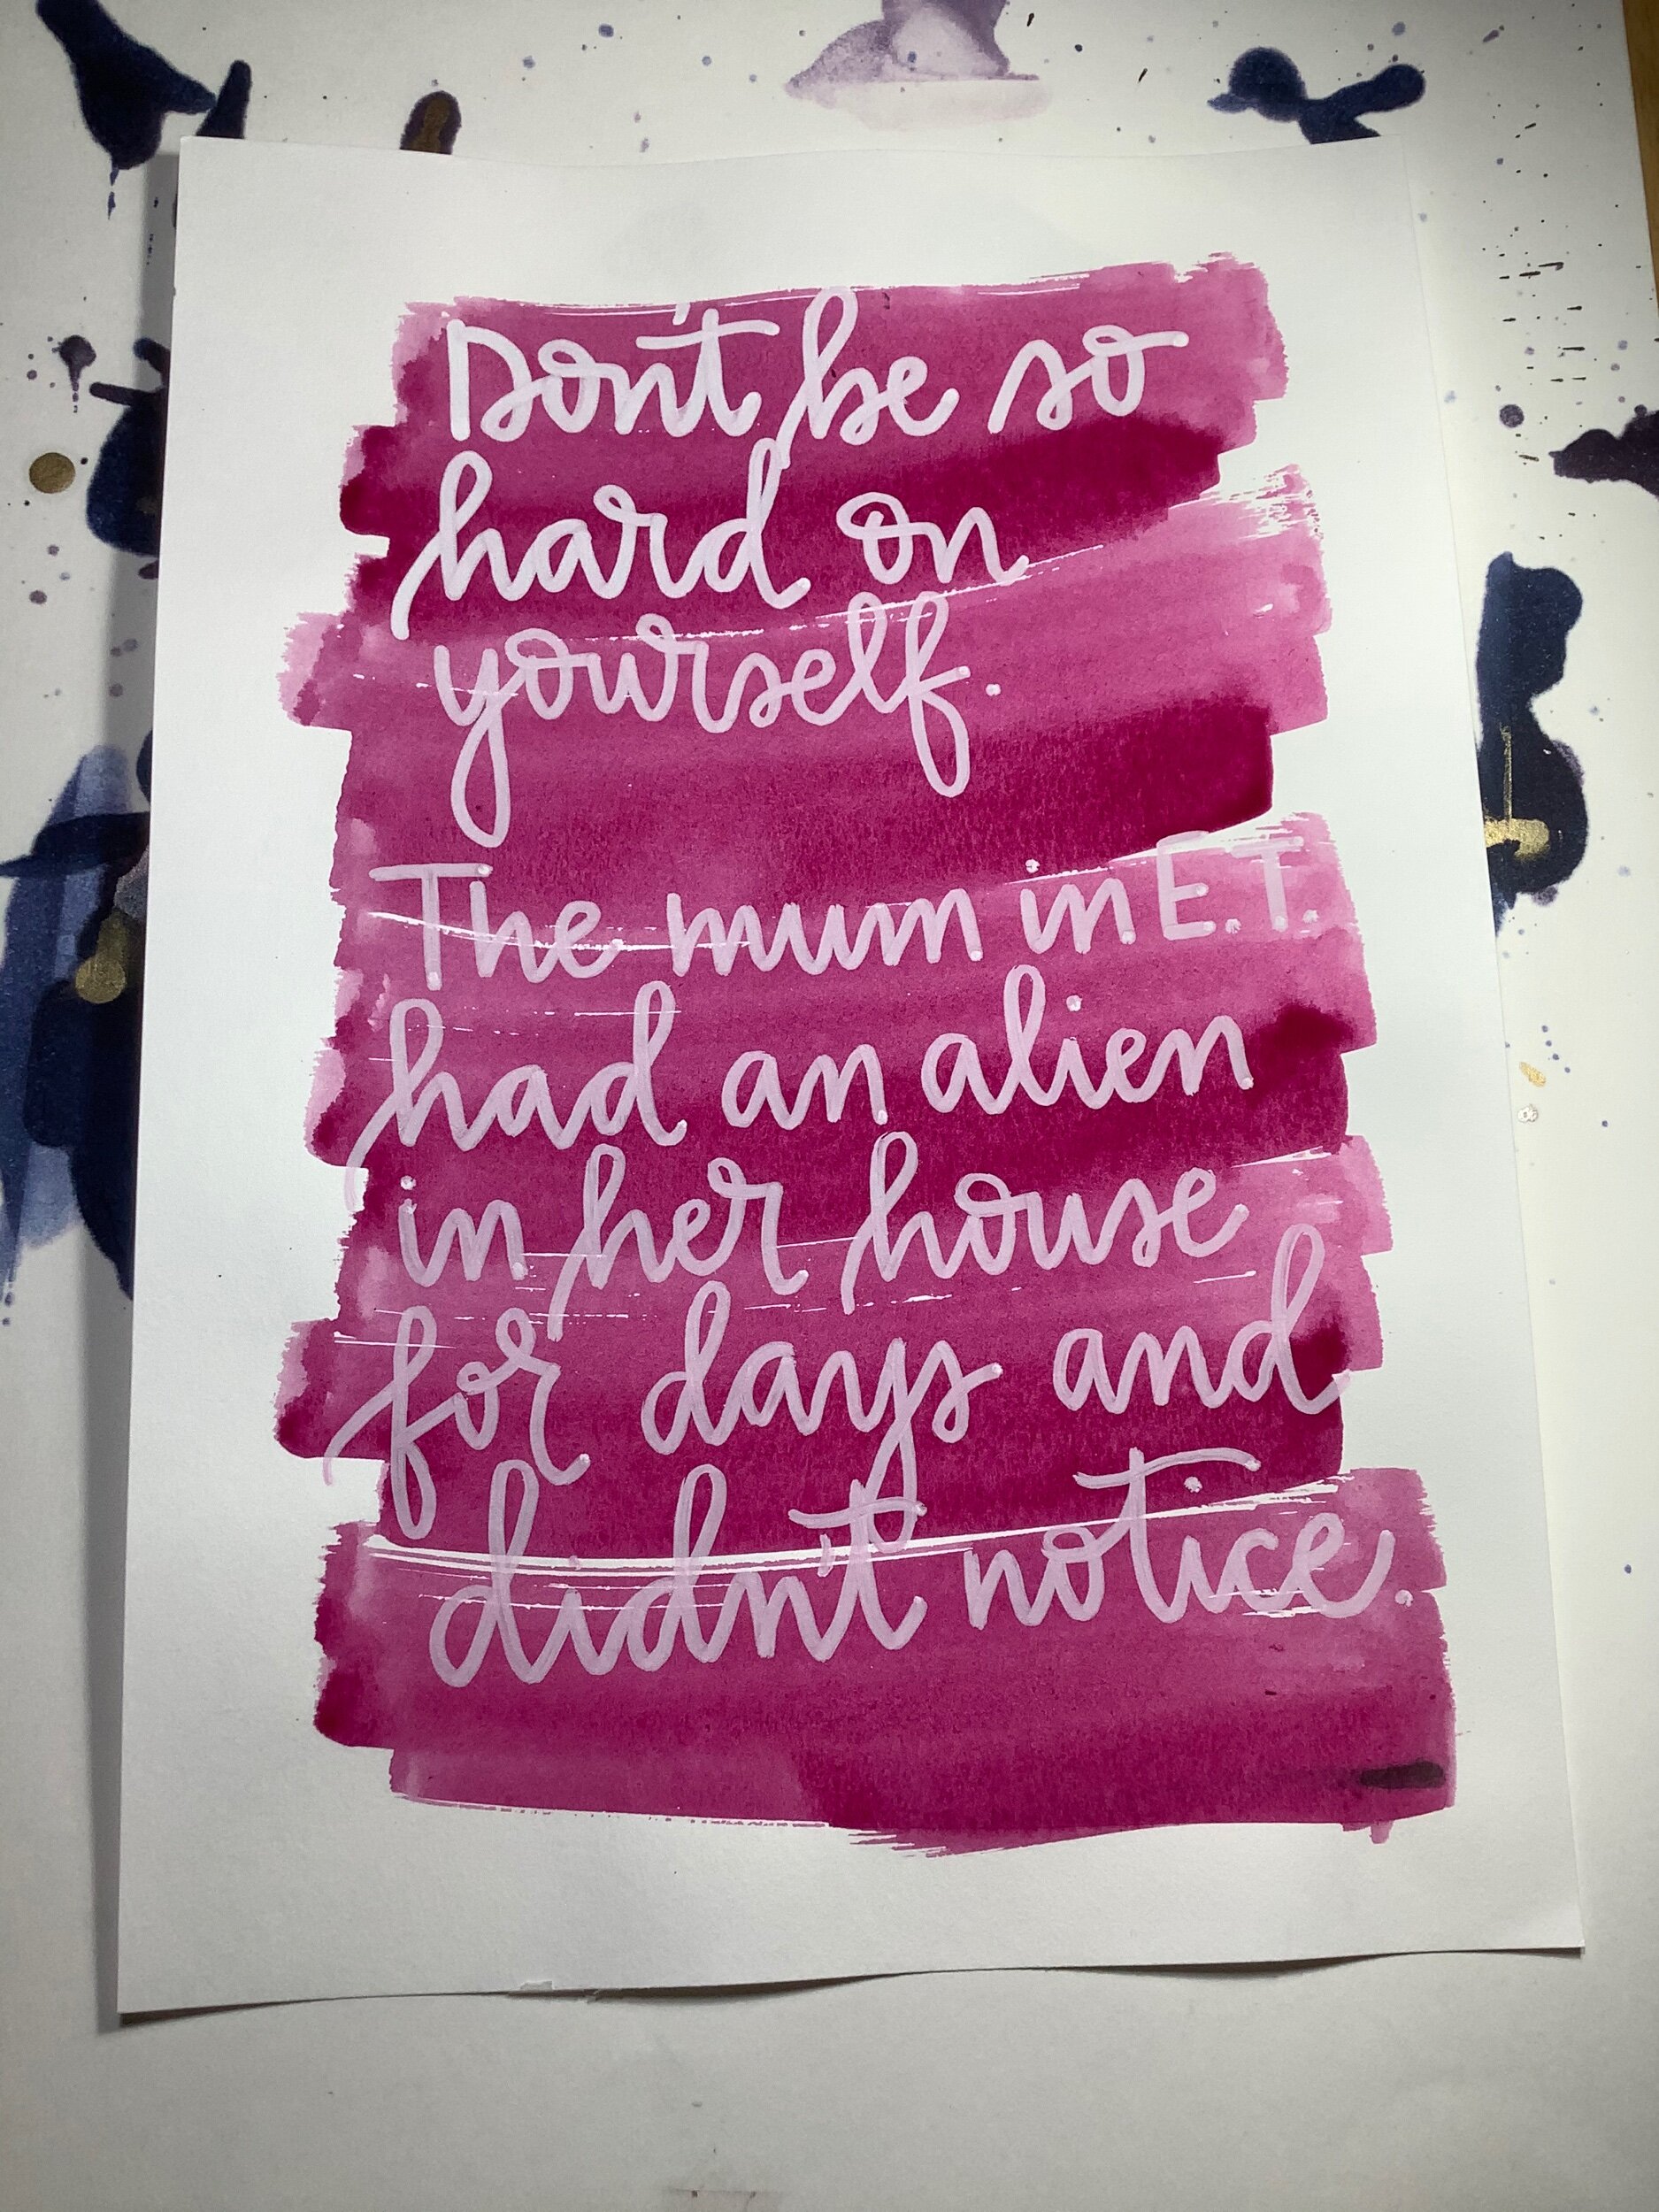 Don't be so
hard on
yourself.
The mum in E.T.
had an alien
in her house
for days and
didn't notice.